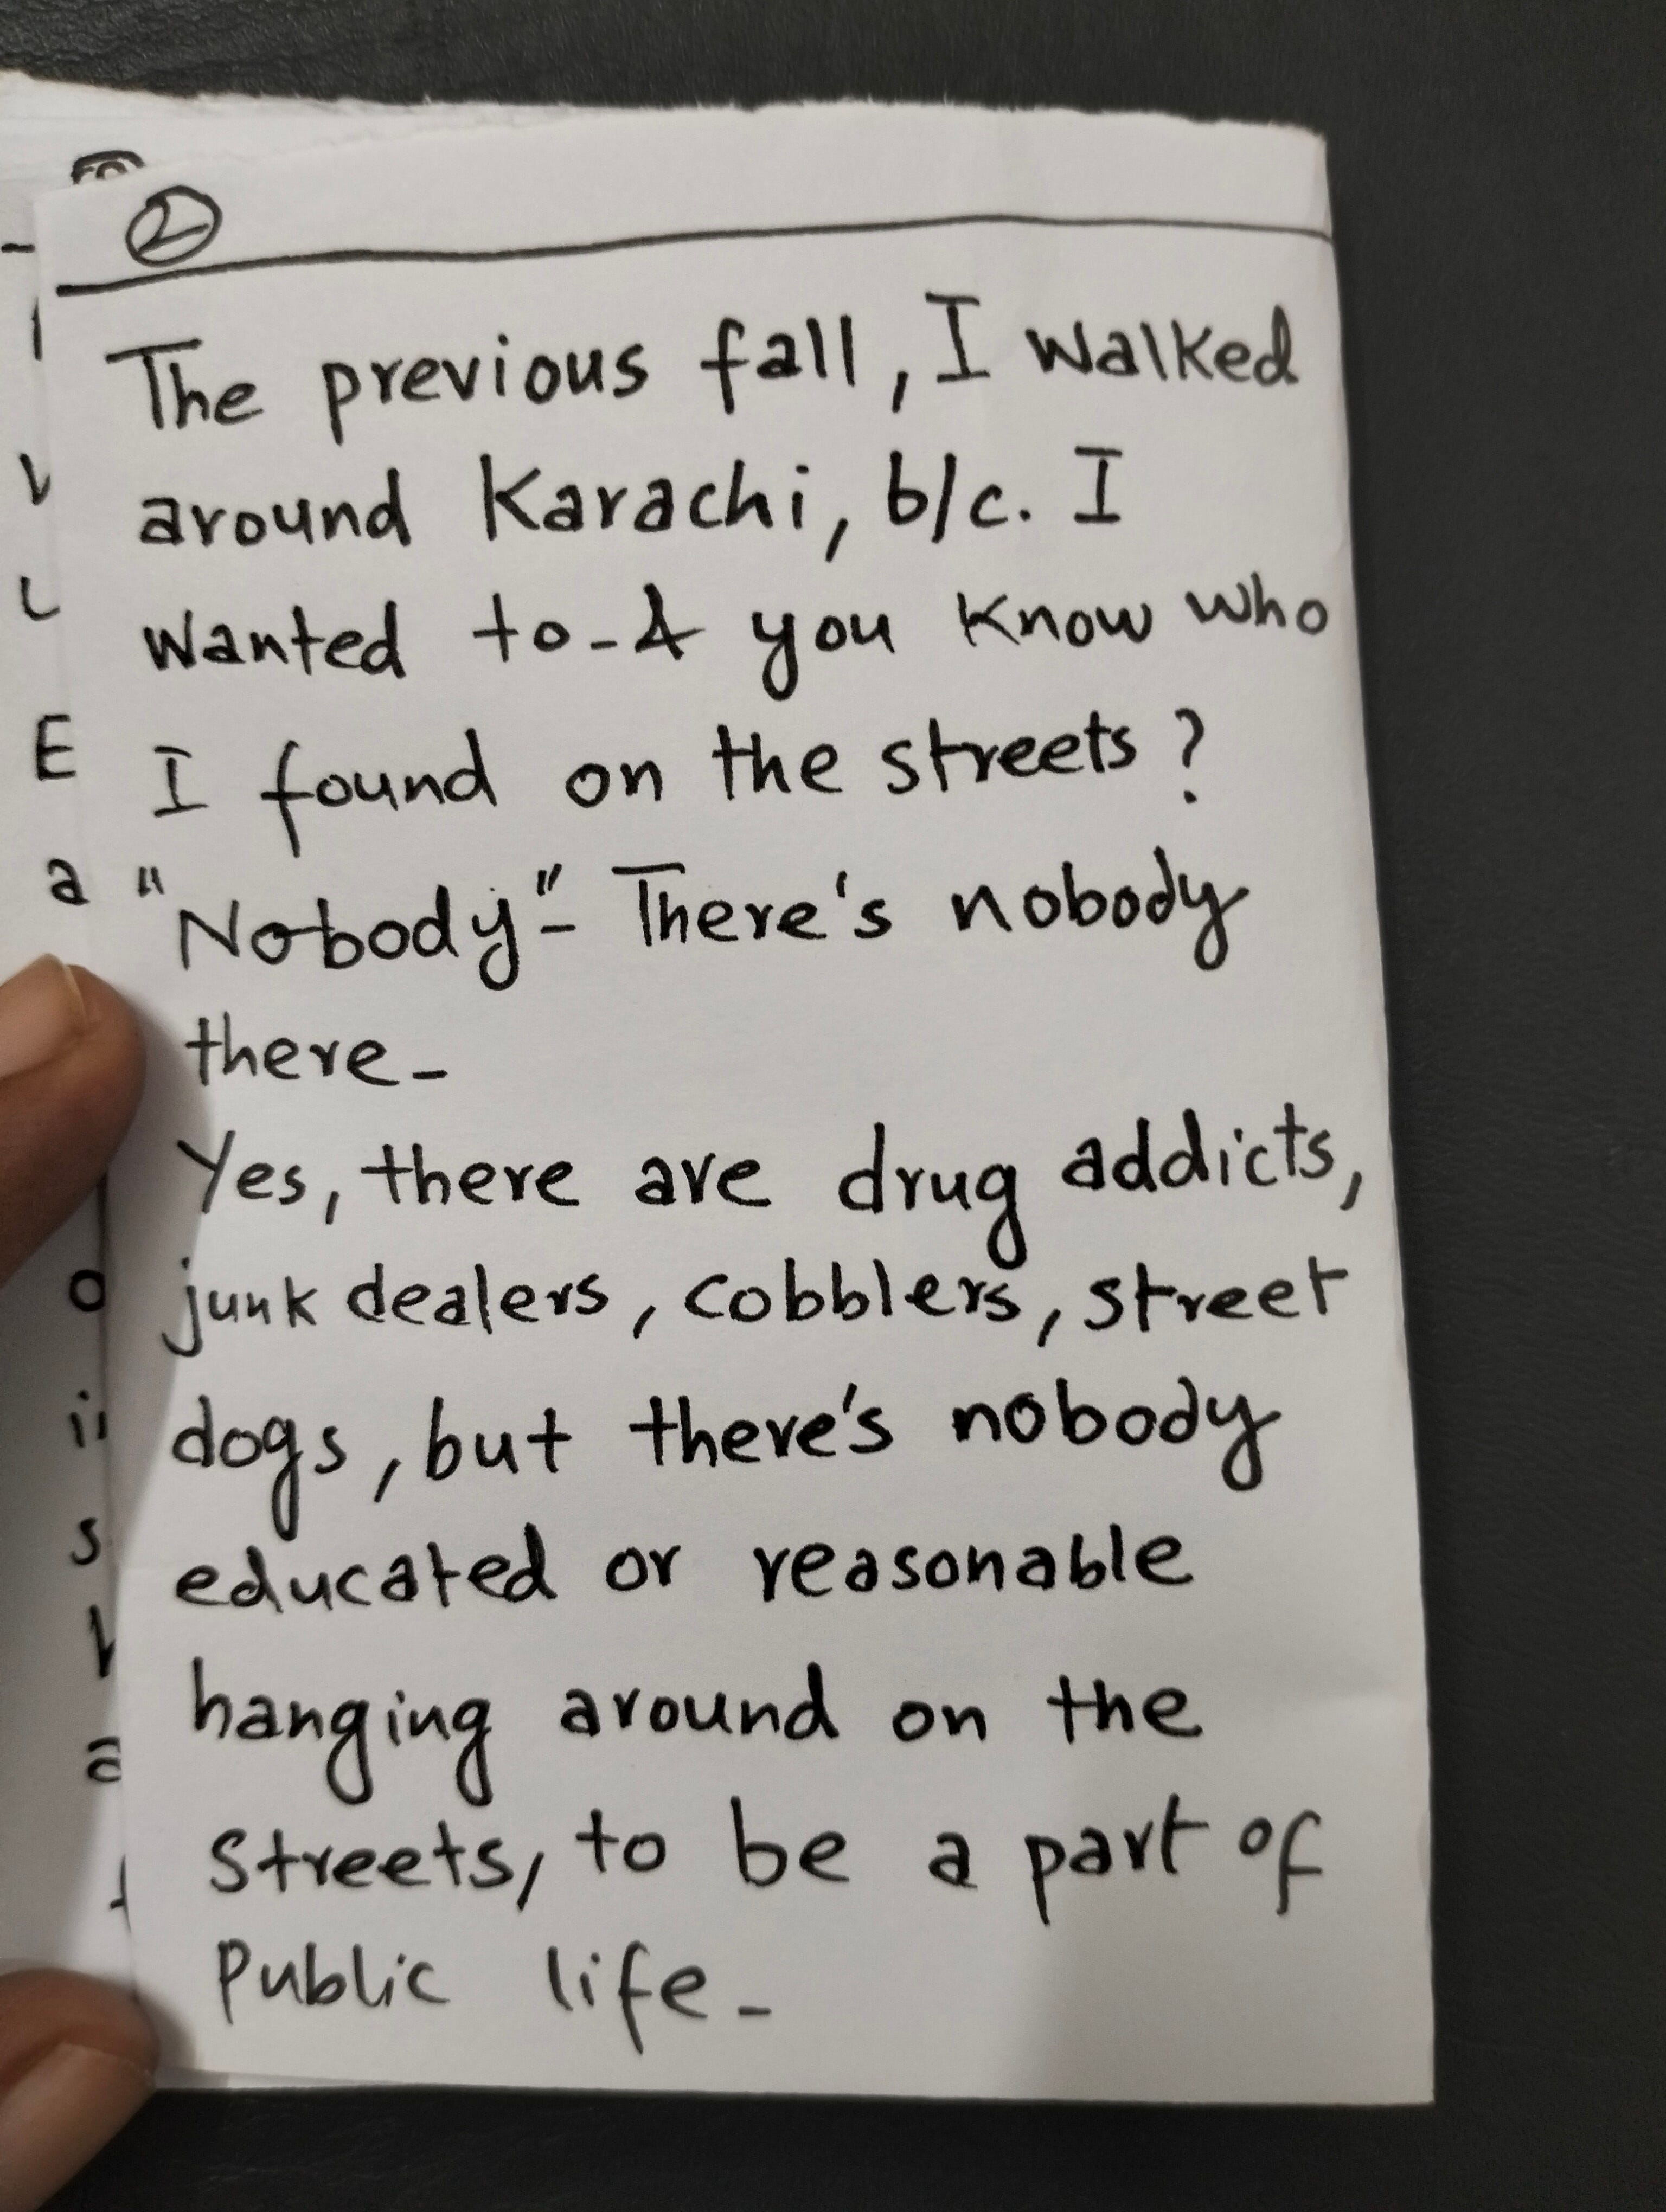 ②
The previous fall, I walked
around Karachi, b/c. I
wanted to - & you know who
I found on the streets?
"Nobody" - There's nobody
there -
Yes, there are drug addicts,
junk dealers, cobblers, street
dogs, but there's nobody
educated or reasonable
hanging around on the
streets, to be a part of
Public life -